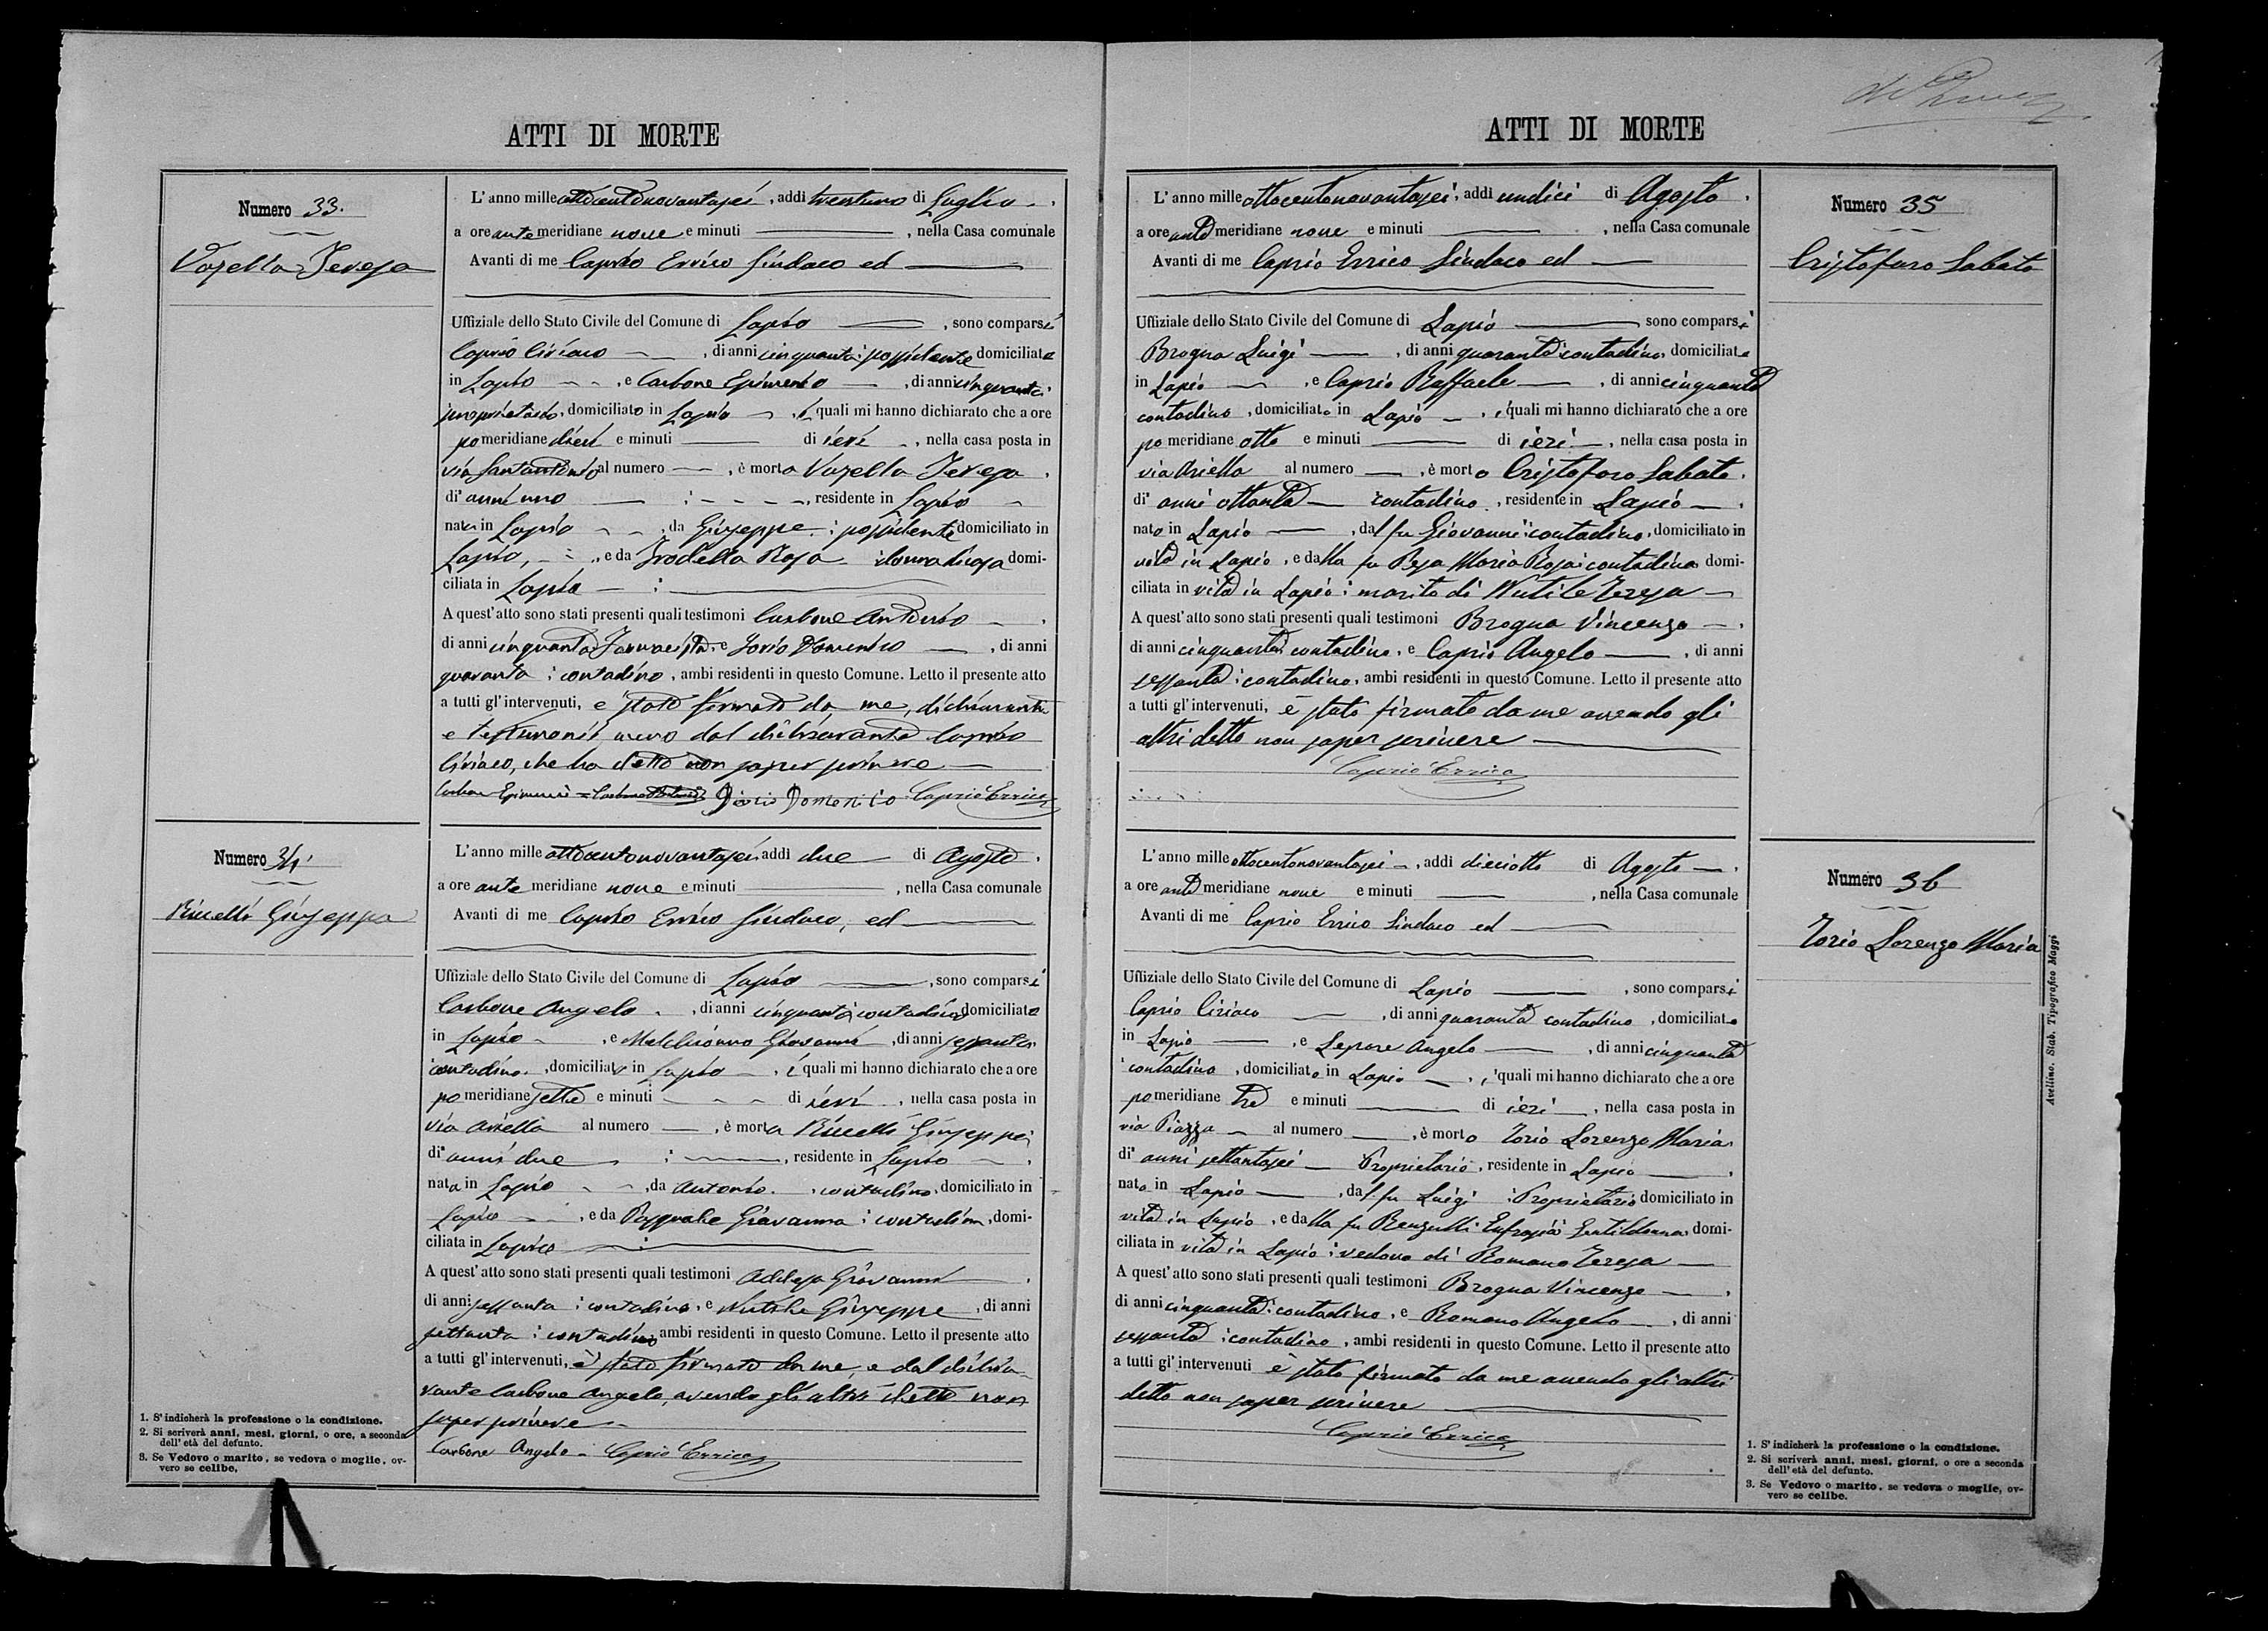 ATTI DI MORTE
Numero 33.
Vozella Teresa
L'anno milleottocentonovantasei, addì trentuno di Luglio.
a ore antemeridiane nove e minuti, nella Casa comunale
Avanti di me Caprio Errico Sindaco ed
Uffiziale dello Stato Civile del Comune di Lapio, sono comparsi
Caprio Ciriaco, di anni cinquanta; possidente domiciliato
in Lapio, e Carbone Epimenio, di anni cinquanta;
proprietario, domiciliato in Lapio, i quali mi hanno dichiarato che a ore
pomeridiane dieci e minuti di ieri, nella casa posta in
via Santantonio al numero, è morta Vozella Teresa.
di anni uno, residente in Lapio
nata in Lapio, da Giuseppe; possidente domiciliato in
Lapio, e da Rosa donna di casa domi-
ciliata in Lapio
A quest'atto sono stati presenti quali testimoni Carbone Antonio
di anni cinquanta Farmacista, e Iorio Domenico, di anni
quaranta; contadino, ambi residenti in questo Comune. Letto il presente atto
a tutti gl'intervenuti, è stato firmato da me, dichiarante
e testimonii, meno dal dichiarante Caprio
Ciriaco, che ha detto non saper scrivere
Carbone Epimenio = Carbone Antonio Diorio Domenico Caprio Errico
Numero 34.
Riccelli Giuseppa
L'anno milleottocentonovantasei addì due di Agosto.
a ore antemeridiane nove e minuti, nella Casa comunale
Avanti di me Caprio Errico Sindaco, ed
Uffiziale dello Stato Civile del Comune di Lapio, sono comparsi
Carbone Angelo, di anni cinquanta; contadino domiciliato
in Lapio, e Melchionno Giovanni, di anni sessanta
contadino, domiciliato in Lapio, i quali mi hanno dichiarato che a ore
pomeridiane sette e minuti di ieri, nella casa posta in
via Ariella al numero, è morta Riccelli Giuseppa
di anni due, residente in Lapio
nata in Lapio, da Antonio, contadino, domiciliato in
Lapio, e da Pasquale Giovanna; contadina, domi-
ciliata in Lapio
A quest'atto sono stati presenti quali testimoni Addesa Giovanni
di anni sessanta; contadino, e Nutile Giuseppe, di anni
settanta; contadino ambi residenti in questo Comune. Letto il presente atto
a tutti gl'intervenuti, è stato firmato da me, e dal dichia-
rante Carbone Angelo, avendo gli altri detto non
saper scrivere
Carbone Angelo - Caprio Errico
1. S'indicherà la professione o la condizione.
2. Si scriverà anni, mesi, giorni, o ore, a seconda
dell'età del defunto.
3. Se Vedovo o marito, se vedova o moglie, ov-
vero se celibe.
ATTI DI MORTE
L'anno milleottocentonovantasei, addì undici di Agosto.
a ore antemeridiane nove e minuti, nella Casa comunale
Avanti di me Caprio Errico Sindaco ed
Uffiziale dello Stato Civile del Comune di Lapio sono comparsi
Brogna Luigi, di anni quaranta; contadino, domiciliato
in Lapio, e Caprio Raffaele, di anni cinquanta
contadino, domiciliato in Lapio, i quali mi hanno dichiarato che a ore
pomeridiane otto e minuti di ieri, nella casa posta in
via Ariella al numero, è morto Cristofaro Sabato.
di anni ottanta contadino, residente in Lapio
nato in Lapio, dal fu Giovanni; contadino, domiciliato in
vita in Lapio, e dalla fu Pesa Maria Rosa; contadina domi-
ciliata in vita in Lapio; marito di Nutile Teresa
A quest'atto sono stati presenti quali testimoni Brogna Vincenzo
di anni cinquanta contadino, e Caprio Angelo, di anni
sessanta; contadino, ambi residenti in questo Comune. Letto il presente atto
a tutti gl'intervenuti, è stato firmato da me avendo gli
altri detto non saper scrivere
Caprio Errico
Numero 35
Cristofaro Sabato
L'anno milleottocentonovantasei, addì dieciotto di Agosto.
a ore antemeridiane nove e minuti, nella Casa comunale
Avanti di me Caprio Errico Sindaco ed
Uffiziale dello Stato Civile del Comune di Lapio, sono comparsi
Caprio Ciriaco, di anni quaranta contadino, domiciliato
in Lapio, e Lepore Angelo, di anni cinquanta
contadino, domiciliato in Lapio, i quali mi hanno dichiarato che a ore
pomeridiane tre e minuti di ieri, nella casa posta in
via Piazza al numero, è morto Iorio Lorenzo Maria
di anni settantasei Proprietario, residente in Lapio
nato in Lapio, dal fu Luigi; Proprietario domiciliato in
vita in Lapio, e dalla fu Renzulli Eufrasia Gentildonna domi-
ciliata in vita in Lapio; vedovo di Romano Teresa
A quest'atto sono stati presenti quali testimoni Brogna Vincenzo
di anni cinquanta; contadino, e Romano Angelo, di anni
sessanta; contadino, ambi residenti in questo Comune. Letto il presente atto
a tutti gl'intervenuti è stato firmato da me avendo gli altri
detto non saper scrivere
Caprio Errico
Numero 36
Iorio Lorenzo Maria
1. S'indicherà la professione o la condizione.
2. Si scriverà anni, mesi, giorni, o ore a seconda
dell'età del defunto.
3. Se Vedovo o marito, se vedova o moglie, ov-
vero se celibe.
Avellino. Stab. Tipografico Maggi